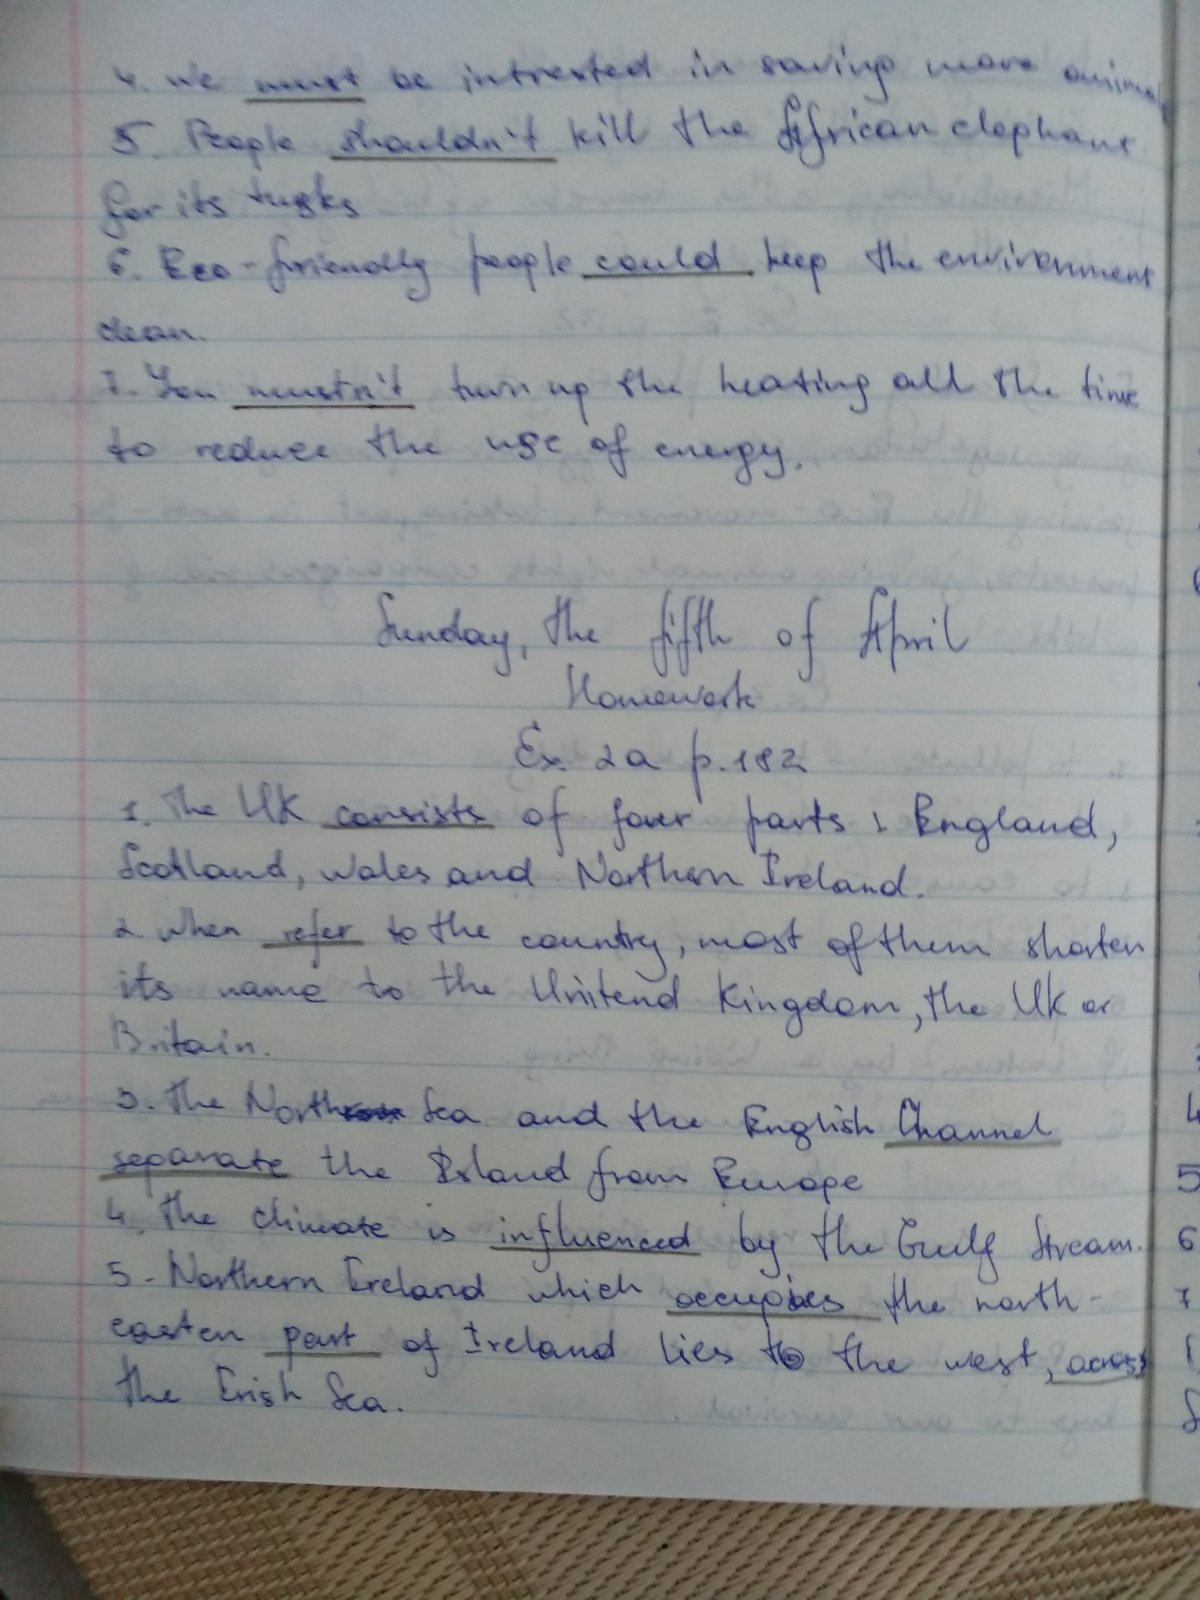 4. We must be intrested in saving more animals
5. People shouldn't kill the African elephant
for its tusks
6. Eco-friendly people could keep the environment
clean.
7. You mustn't turn up the heating all the time
to reduce the use of energy.
Sunday, the fifth of April
Homework
Ex. 2a p. 182
1. The UK consists of four parts: England,
Scotland, Wales and Northern Ireland.
2. When refer to the country, most of them shorten
its name to the Unitend Kingdom, the UK or
Britain.
3. The North Sea and the English Channel
separate the Island from Europe
4. The climate is influenced by the Gulf Stream.
5. Northern Ireland which occupies the north-
easten part of Ireland lies to the west, across
the Irish Sea.
4
5
6
7